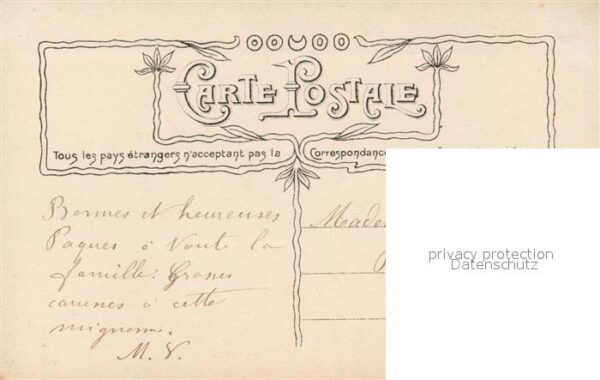 CARTE POSTALE
Tous les pays étrangers n'acceptant pas la Correspondance
Bonnes et heureuses
Paques à toute la
famille. Grosses
caresses à cette
mignonne.
M. V.
Made
privacy protection
Datenschutz